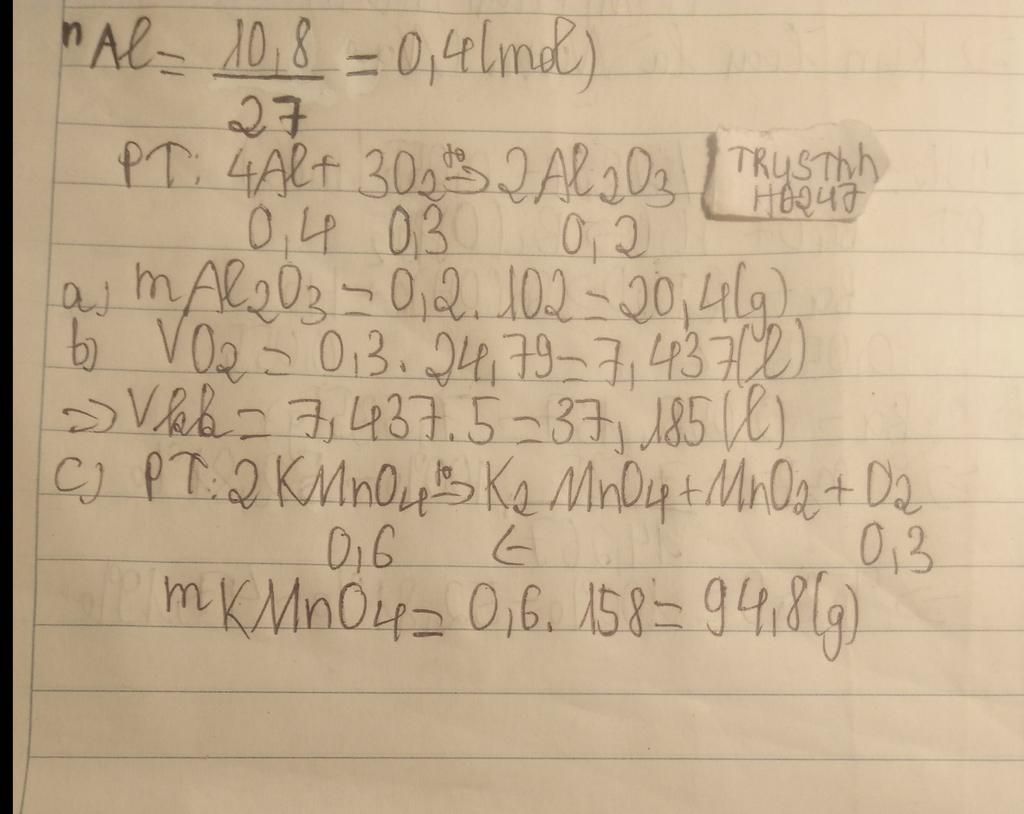 nAl = 10,8 / 27 = 0,4 (mol)
PT: 4Al + 3O2 t°⇒ 2Al2O3
TRYSThh
H6247
0,4 0,3 0,2
a) mAl2O3 = 0,2 . 102 = 20,4 (g)
b) VO2 = 0,3 . 24,79 = 7,437 (l)
=> Vkk = 7,437 . 5 = 37,185 (l)
c) PT: 2KMnO4 t°⇒ K2MnO4 + MnO2 + O2
0,6 ← 0,3
mKMnO4 = 0,6 . 158 = 94,8 (g)